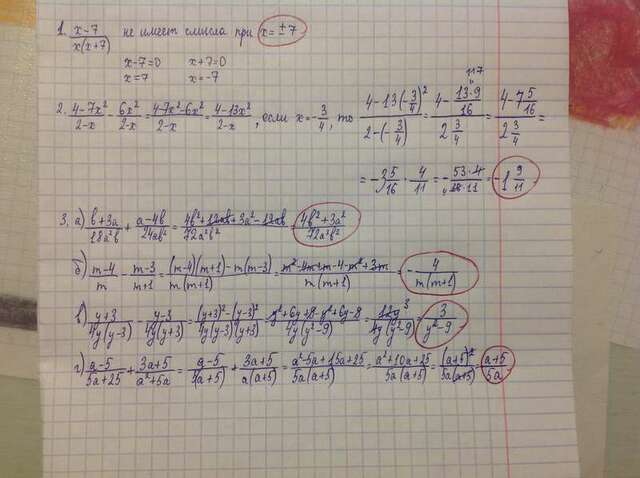 1. x-7/x(x+7) не имеет смысла при x=±7
x-7=0 x+7=0
x=7 x=-7
117
2. 4-7x²/2-x - 6x²/2-x = 4-7x²-6x²/2-x = 4-13x²/2-x, если x=-3/4, то 4-13(-3/4)²/2-(-3/4) = 4-13·9/16/2 3/4 = 4-7 5/16/2 3/4 =
= -25/16 · 4/11 = -53·4/16·11 = -1 9/11
3. а) b+3a/18a²b + a-4b/24ab² = 4b²+12ab+3a²-12ab/72a²b² = 4b²+3a²/72a²b²
б) m-4/m - m-3/m+1 = (m-4)(m+1)-m(m-3)/m(m+1) = m²-4m+m-4-m²+3m/m(m+1) = -4/m(m+1)
в) y+3/4y(y-3) - y-3/4y(y+3) = (y+3)²-(y-3)²/4y(y-3)(y+3) = y²+6y+9-y²+6y-9/4y(y²-9) = 12y 3/4y(y²-9) = 3/y²-9
г) a-5/5a+25 + 3a+5/a²+5a = a-5/5(a+5) + 3a+5/a(a+5) = a²-5a+15a+25/5a(a+5) = a²+10a+25/5a(a+5) = (a+5)²/5a(a+5) = a+5/5a